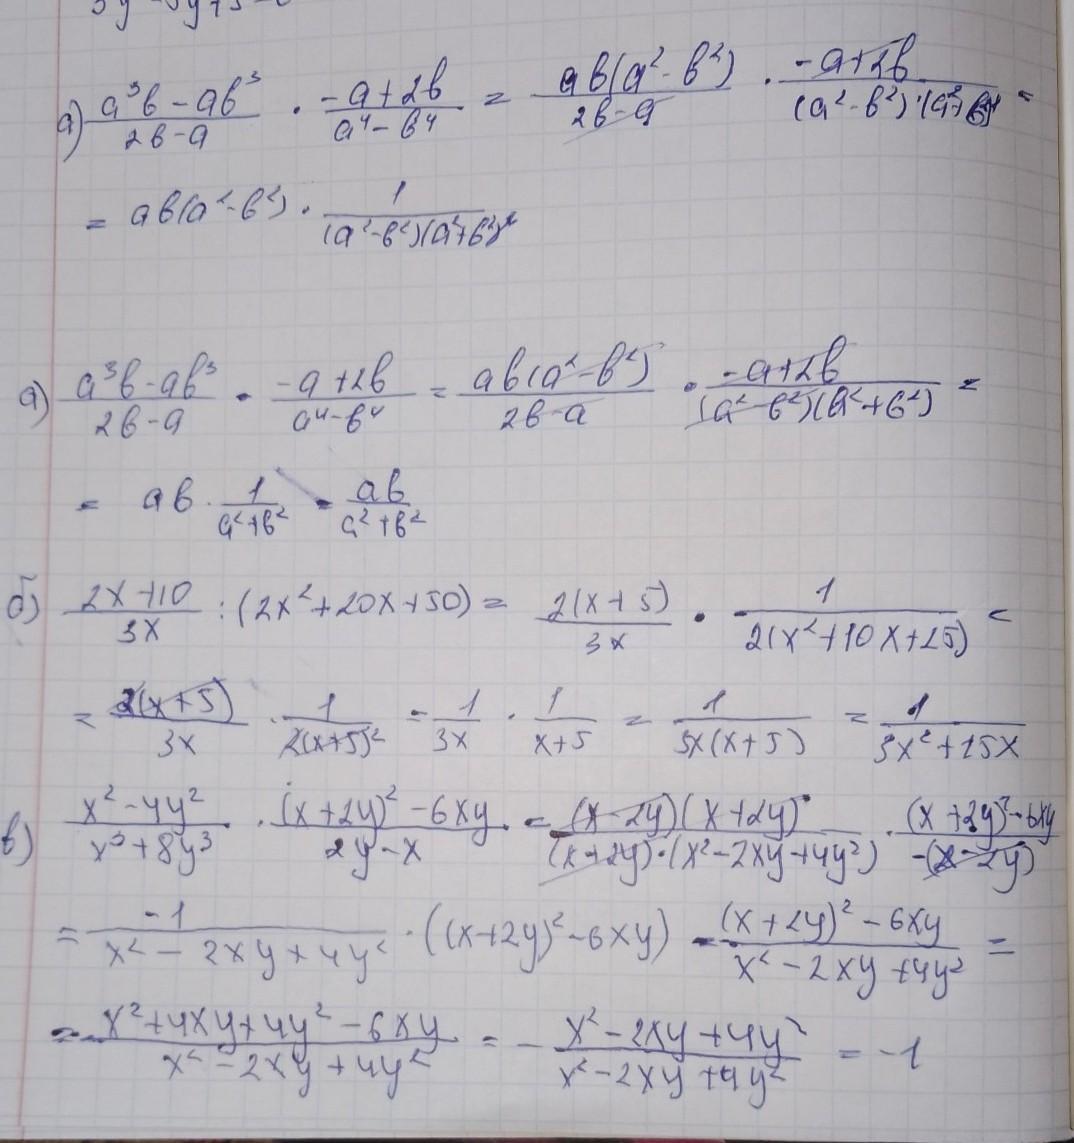 а) (a³b - ab³)/(2b - a) · (-a + 2b)/(a⁴ - b⁴) = ab(a² - b²)/(2b - a) · (-a + 2b)/((a² - b²)·(a² + b²)) =
= ab(a² - b²) · 1/((a² - b²)(a² + b²))
а) (a³b - ab³)/(2b - a) · (-a + 2b)/(a⁴ - b⁴) = ab(a² - b²)/(2b - a) · (-a + 2b)/((a² - b²)(a² + b²)) =
= ab · 1/(a² + b²) = ab/(a² + b²)
б) (2x + 10)/3x : (2x² + 20x + 50) = 2(x + 5)/3x · 1/(2(x² + 10x + 25)) =
= 2(x + 5)/3x · 1/(2(x + 5)²) = 1/3x · 1/(x + 5) = 1/(3x(x + 5)) = 1/(3x² + 15x)
в) (x² - 4y²)/(x³ + 8y³) · ((x + 2y)² - 6xy)/(2y - x) = (x - 2y)(x + 2y)/((x + 2y)·(x² - 2xy + 4y²)) · ((x + 2y)² - 6xy)/(-(x - 2y))
= -1/(x² - 2xy + 4y²) · ((x + 2y)² - 6xy) = -((x + 2y)² - 6xy)/(x² - 2xy + 4y²) =
= -(x² + 4xy + 4y² - 6xy)/(x² - 2xy + 4y²) = -(x² - 2xy + 4y²)/(x² - 2xy + 4y²) = -1